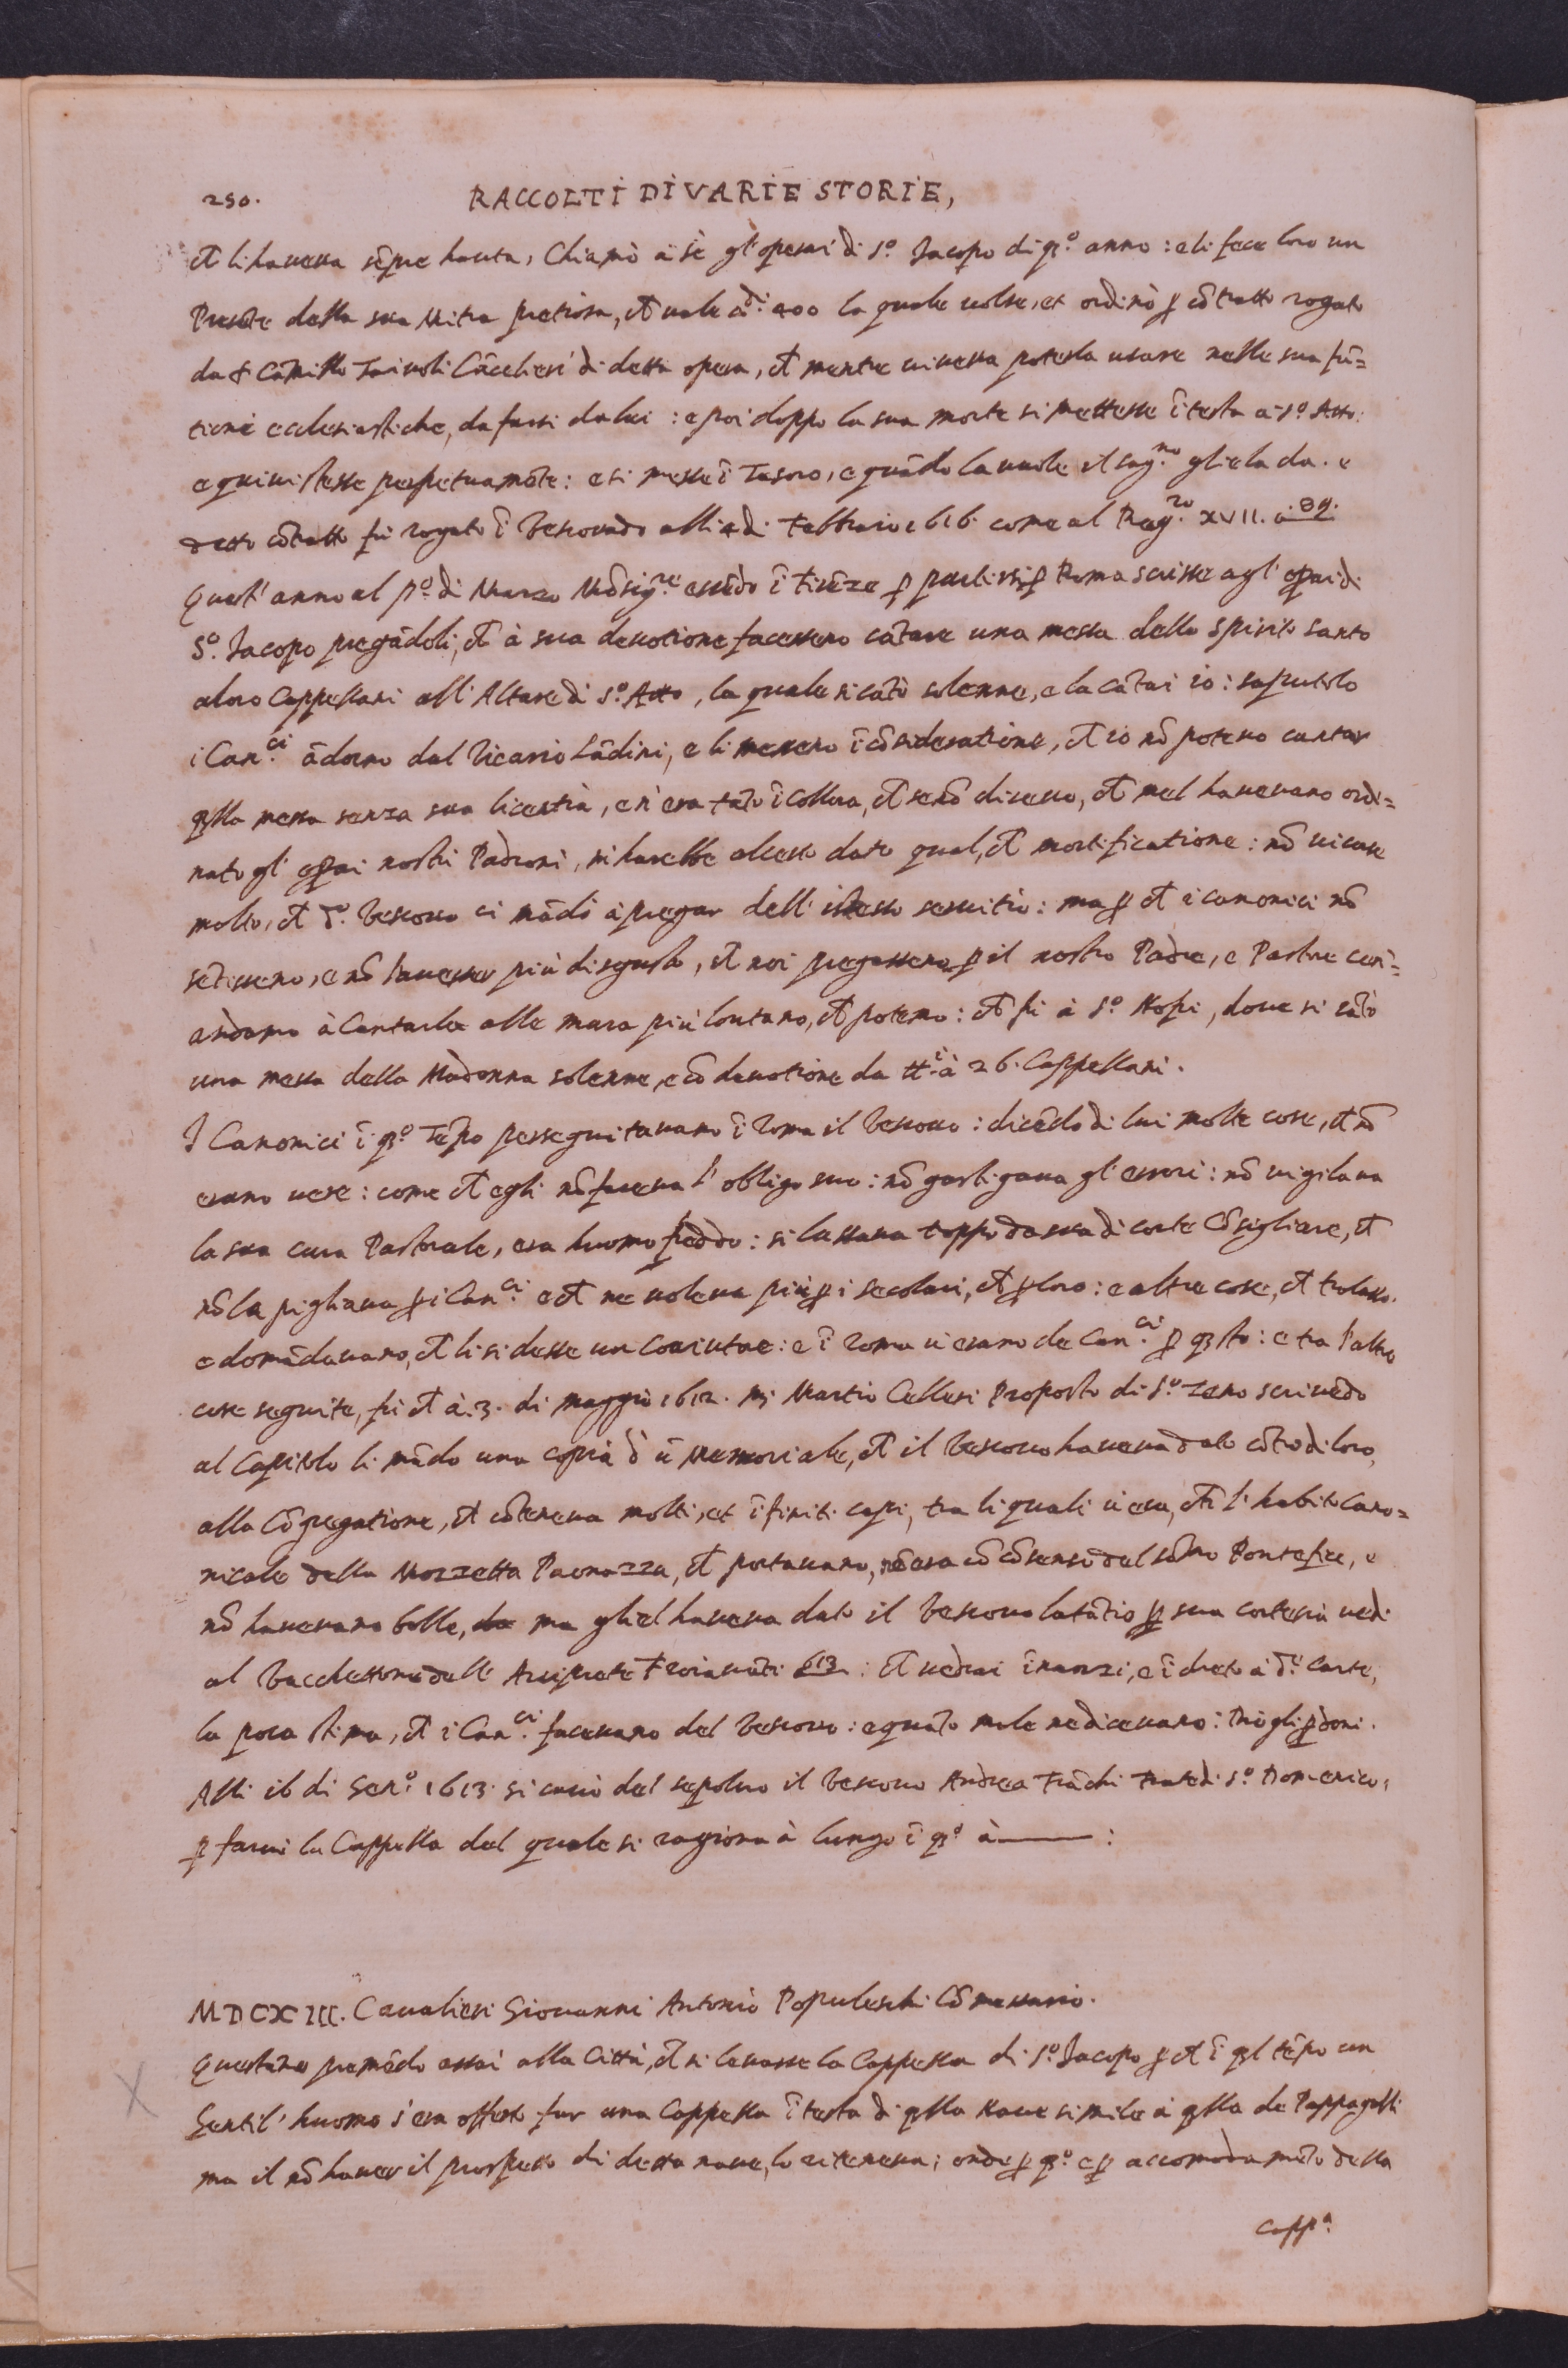 250. RACCOLTI DI VARIE STORIE,
ch li haueua sẽpre hauta, Chiamò à sè gl'operai di S.º Jacopo di q.º anno: e li fece loro un
Presẽte della sua Mitra pretiosa, ch uale di 400 la quale uolse, et ordinò p cõtratto rogato
da Cãmillo Cãcelieri di detta opera, ch mentre uiueua poterla usare nelle sua fũ=
tioni ecclesiastiche, da farsi da lui: e poi doppo la sua morte si mettesse ĩ testa à S.º Atto:
e quiui stesse perpetuamẽte: e si messe ĩ Tesoro, e quãdo la uuole il sag.no gliela da. e
detto cõtratto fu rogato ĩ Vescouado alli 4 di Febbraio 1616. come al Reg.ro XVII. à 89.
Quest'anno al p.º di Marzo Mõsig.re essẽdo ĩ Firẽze p partirsi p Roma scrisse agl'opai di
S.º Jacopo pregãdoli, ch à sua deuotione facessero cãtare una messa dello Spirito santo
a loro Cappellani all'Altare di S.º Atto, la quale si cãtò solenne, e la cãtai io: saputolo
i Can.ci ãdorno dal Vicario Lãdini, e li messero ĩ cõsideratione, ch io nõ poteuo cantar
qlla messa senza sua licentia, e n'era tãto ĩ collora, ch se nõ diceuo, ch mel haueuano ordi=
nato gl'opai nostri Padroni, mi harebbe al certo dato qual, ch mortificatione: nõ
molto, ch d.º Vescouo ci mãdò à pregar dell'istesso seruitio: ma p ch i canonici nõ
sẽtissero, e nõ hauesser più disgusto, ch noi pregassero p il nostro Padre, e Pastore carì=
andamo à Cantarla alle mura più lontano, ch potemo: ch fu à S.º Nofri, doue si cãtò
una messa della Madonna solenne, e cõ deuotione da tt.i à 26. Cappellani.
I Canonici ĩ q.º Tẽpo perseguitauano ĩ Roma il Vescouo: dicẽdo di lui molte cose, ch nõ
erano uere: come ch egli nõ faceua l'obligo suo: nõ gastigaua gl'errori: nõ uigilaua
la sua cura Pastorale, era huomo freddo: si lassaua troppo da sua di corte Cõsigliare, ch
nõ la pigliaua p i Can.ci e ch ne uoleua più p i secolari, ch p loro: e altre cose, ch tralasso.
e domãdauano, ch li si desse un Coaiutore: e ĩ Roma ui erano de Can.ci p qsto: e tra l'altre
cose seguite, fu ch à 3. di maggio 1612. Martio Cellesi Proposto di S.º Zeno scriuẽdo
al Capitolo li mãdo una copia d ũ Memoriale, ch il Vescouo haueua dato cõtro di loro,
alla Cõgregatione, ch cõteneua molti, et ĩfiniti capi, tra li quali ui era, ch l'habito Cano=
nicale della Mozzetta Paonazza, ch portauano, nõ era cõ cõsenso del sõmo Pontefice, e
nõ haueuano bolle, ma gliel haueua dato il Vescouo latãtio p sua cortesia uedi
al Bacchettone dell Arciprete Froianũti 613: ch uedrai ĩnanzi, e ĩ dreto à d.e Carte,
la poca stima, ch i Can.ci faceuano del Vescouo: e quãto male ne diceuano: Dio gli pdoni.
Alli 16 di Gen.º 1613. si cauò del sepolcro il Vescouo Andrea Frãchi Frate di S.º Domenico,
p farui la Cappella del quale si ragiona à lungo ĩ q.º à ——— :
MDCXIII. Caualieri Giouanni Antonio Popoleschi Cõmessario.
Quest'ano premẽdo assai alla Città, ch si leuasse la Cappella di S.º Jacopo p ch ĩ ql tẽpo un
Gentil'huomo s'era offerto far una Cappella ĩ testa di qlla Naue simile à qlla de Pappagalli
ma il nõ hauer il prospetto di detta naue, lo riteneua; onde p q.º e p accomodamẽto della
Capp.a